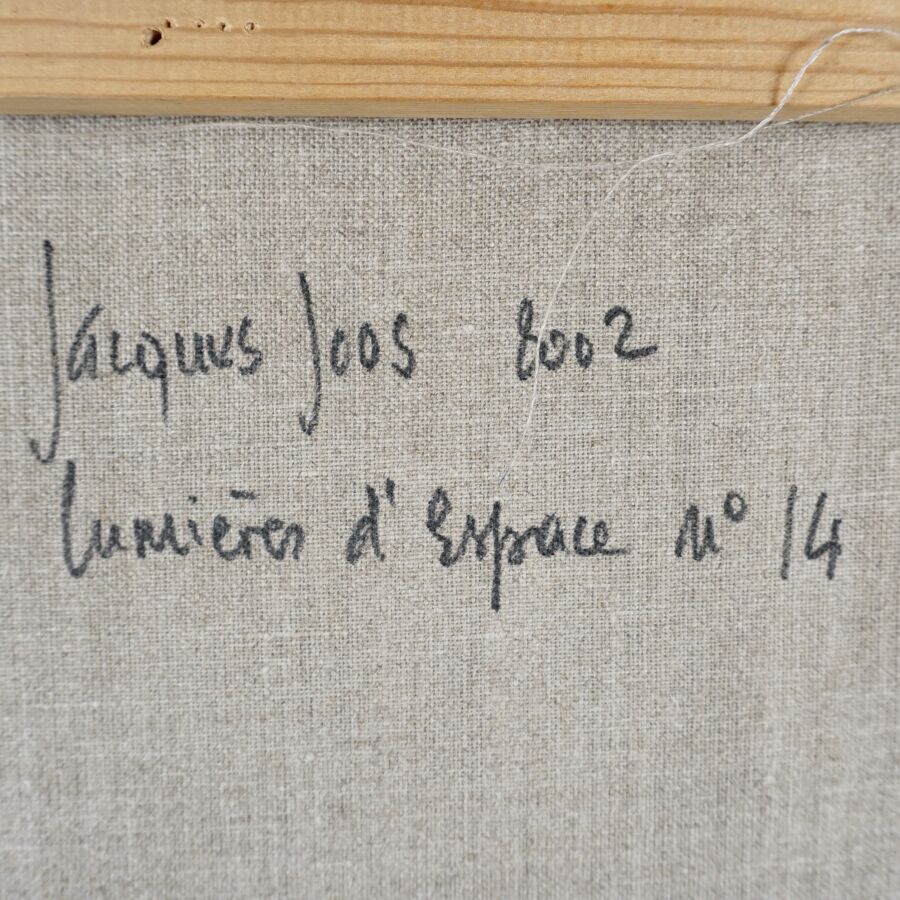 Jacques Joos 2002
Lumières d'Espace n° 14